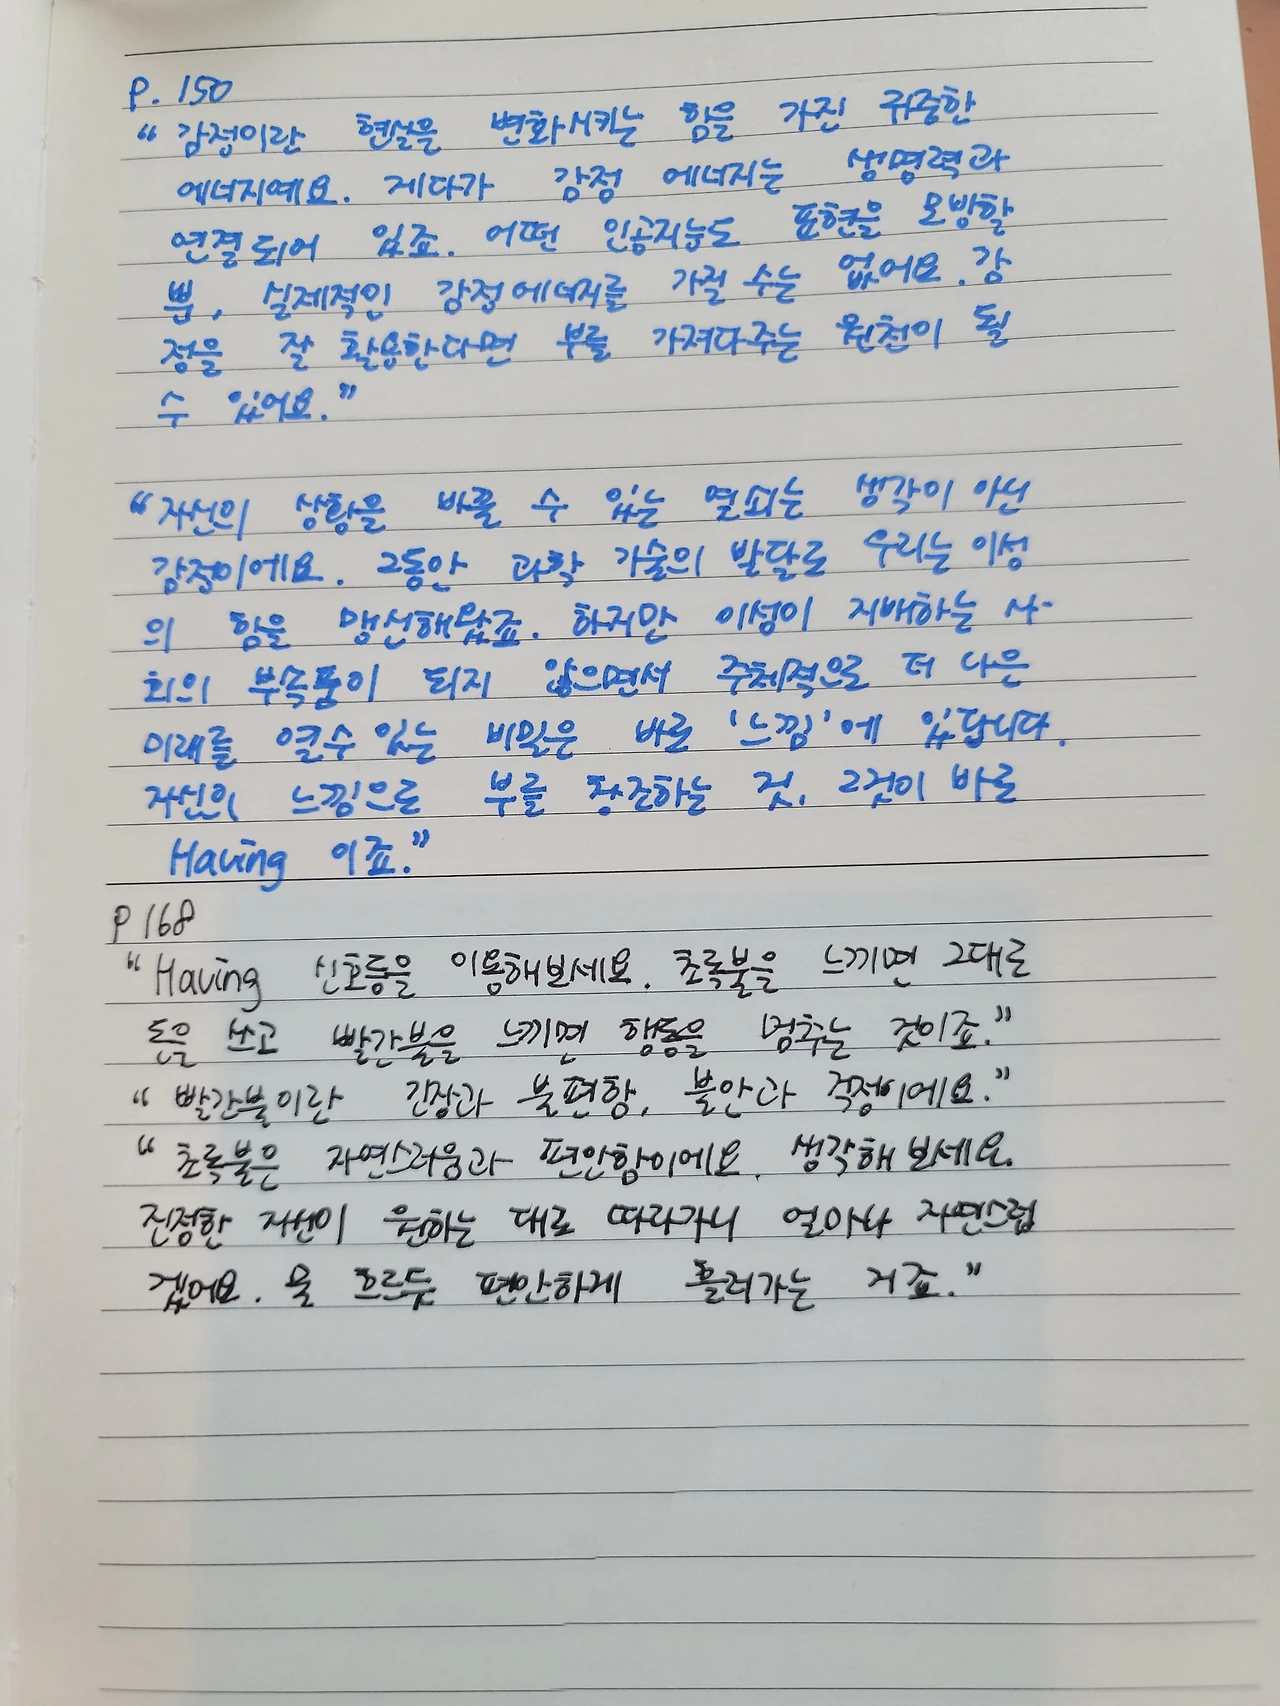 P. 150
“감정이란 현실을 변화시키는 힘을 가진 귀중한
에너지예요. 게다가 감정 에너지는 생명력과
연결되어 있죠. 어떤 인공지능도 표현을 모방할
뿐, 실제적인 감정에너지를 가질 수는 없어요. 감
정을 잘 활용한다면 부를 가져다주는 원천이 될
수 있어요.”
“자신의 상황을 바꿀 수 있는 열쇠는 생각이 아닌
감정이에요. 그동안 과학 기술의 발달로 우리는 이성
의 힘을 맹신해왔죠. 하지만 이성이 지배하는 사
회의 부속품이 되지 않으면서 주체적으로 더 나은
미래를 열수 있는 비밀은 바로 '느낌'에 있답니다.
자신의 느낌으로 부를 창조하는 것. 그것이 바로
Having 이죠.”
P 168
“Having 신호등을 이용해보세요. 초록불을 느끼면 그대로
돈을 쓰고 빨간불을 느끼면 행동을 멈추는 것이죠.”
“빨간불이란 긴장과 불편함, 불안과 걱정이에요.”
“초록불은 자연스러움과 편안함이에요. 생각해 보세요.
진정한 자신이 원하는 대로 따라가니 얼마나 자연스럽
겠어요. 물 흐르듯 편안하게 흘러가는 거죠.”